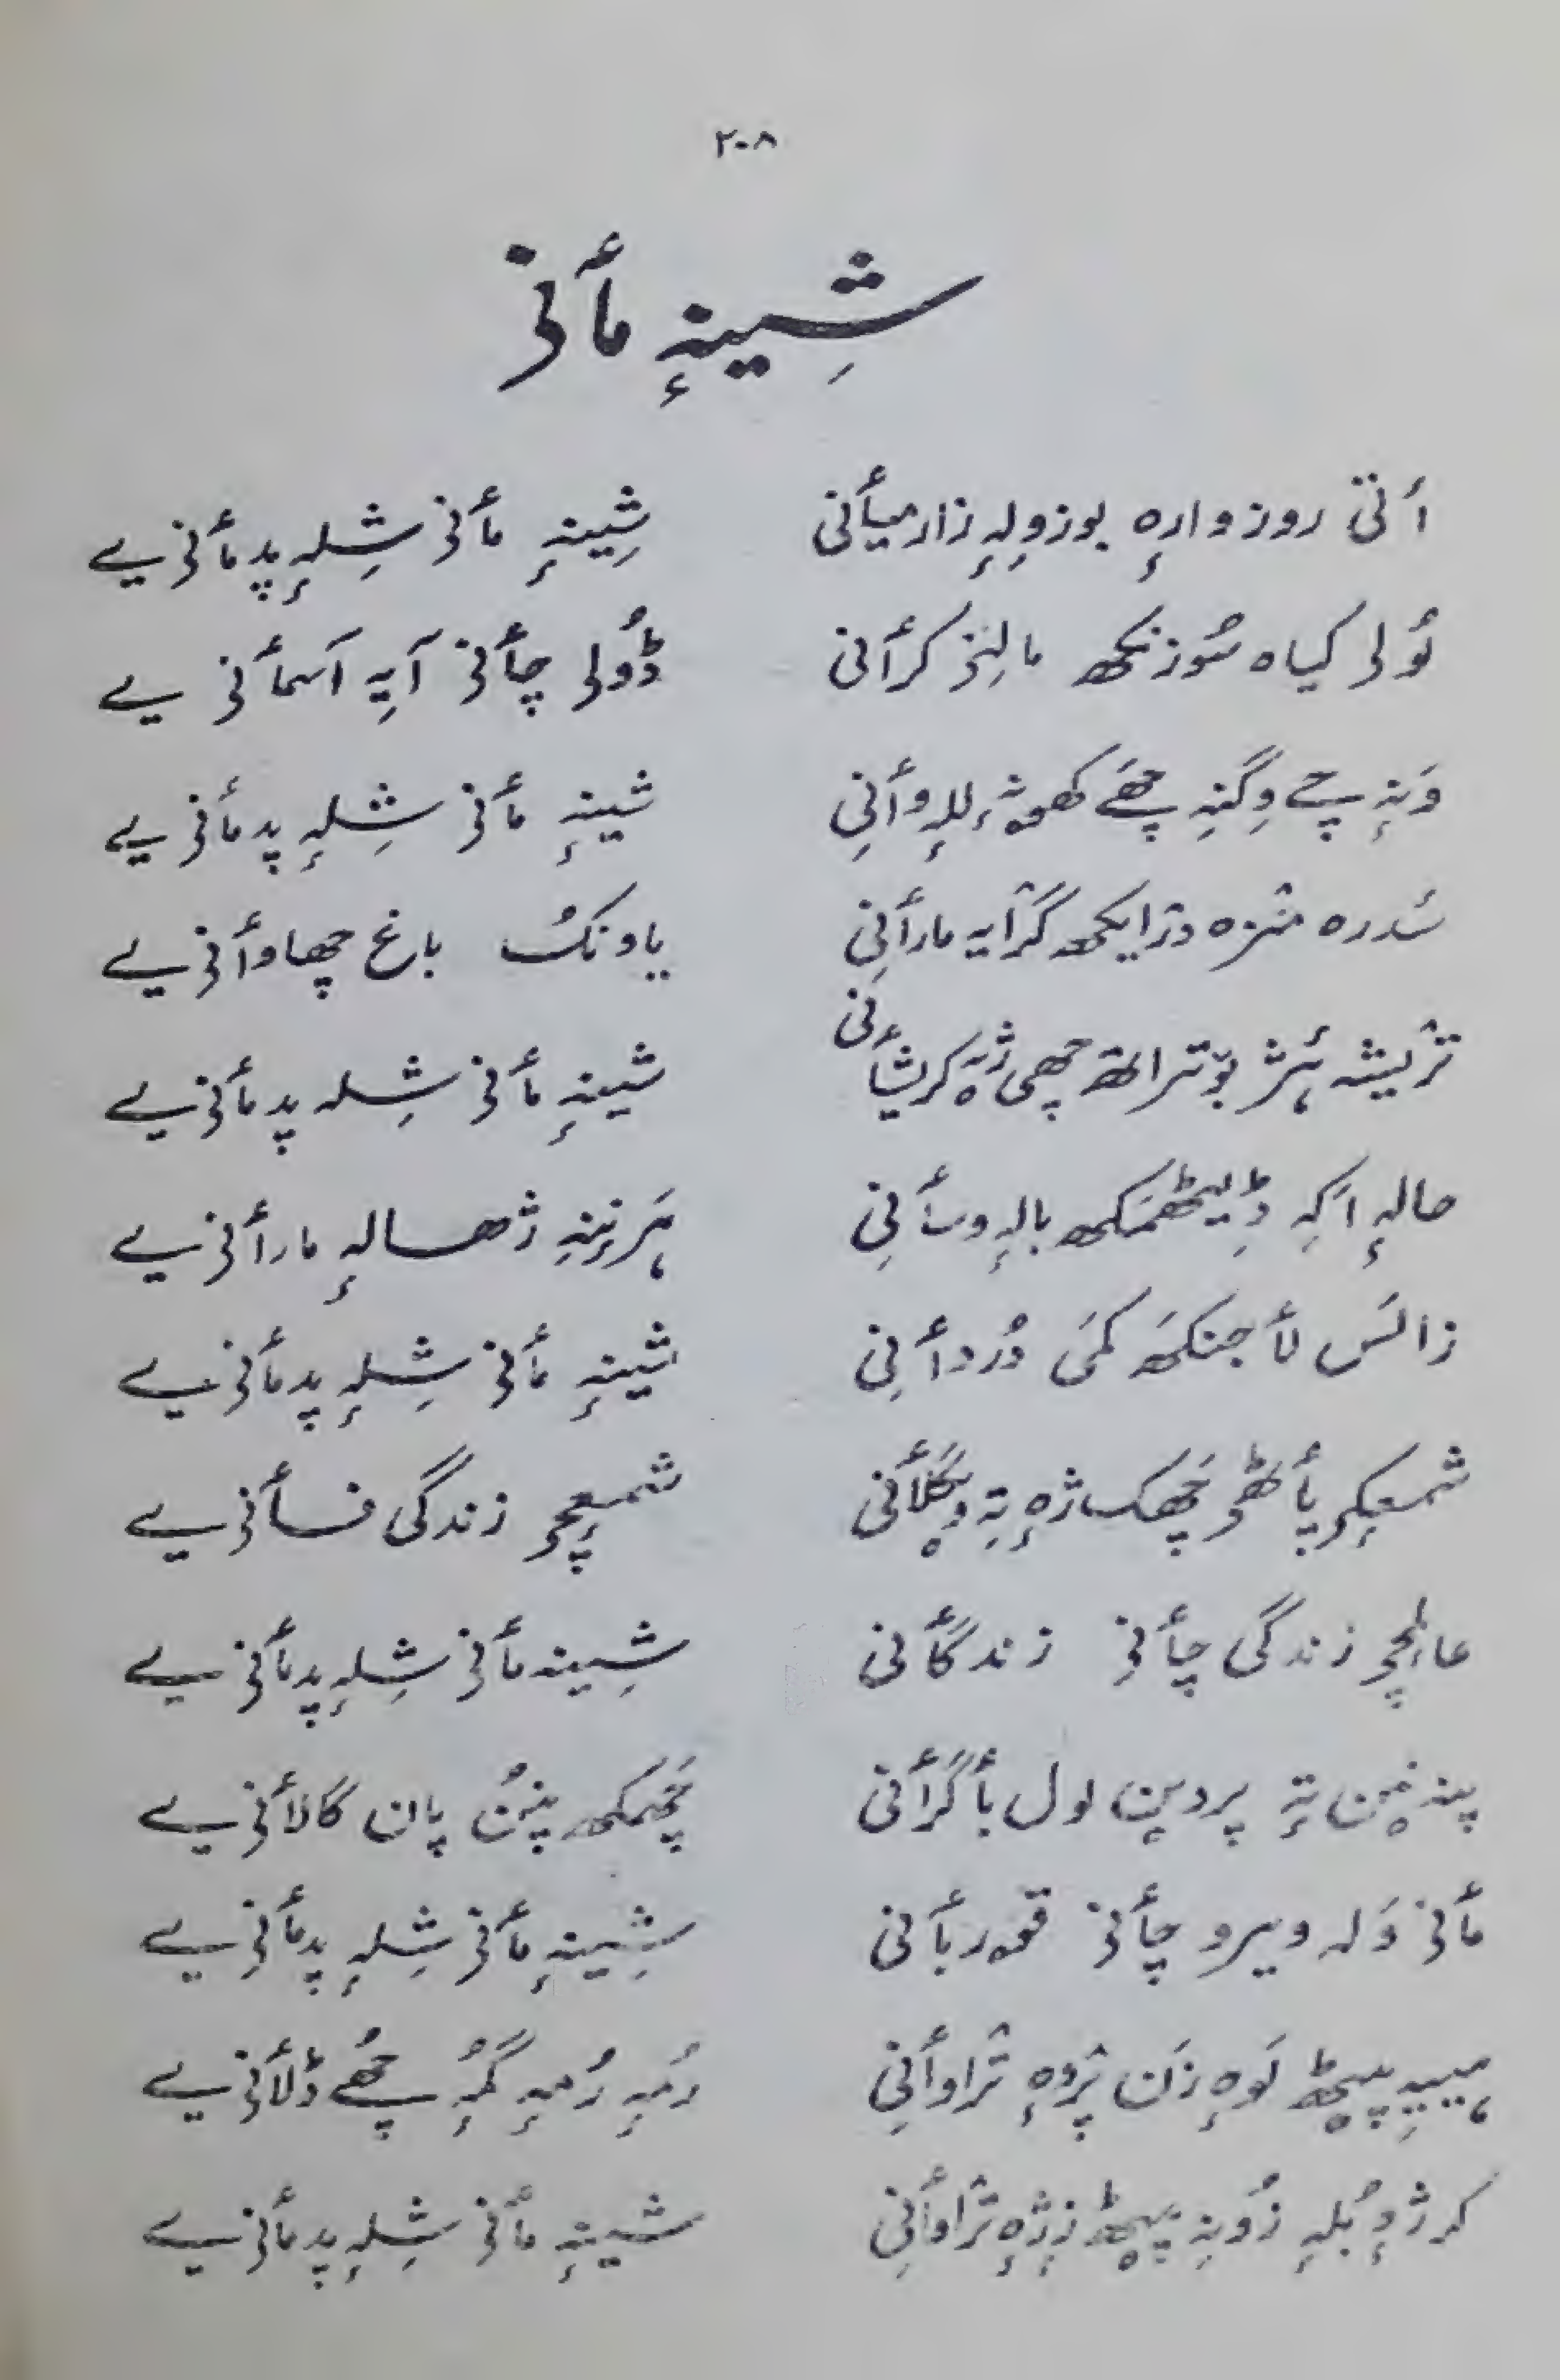 ۲۰۸
شِینہٕ مأنی
أتی روزوارہٕ بوزوِلہٕ زار میأنی شِینہٕ مأنی شِلہٕ پد مأنی یے
لُولی کیاہ سُوزنکھ مالِنی کرأنی ڈُولی چأنی آیہِ آسمأنی یے
وَنہٕ چے وِگنہِ چھَے کھوتہٕ للہٕ وأنِی شینہٕ مأنی شِلہٕ پد مأنی یے
سُدرہ منزہ درٛایکھ گرٛایہ مارأنِی یاونکُ باغ چھاوأنی یے
ترٛیشہ ہٕژ بوترالتھ چھی ژٕہ کریشأنی شینہٕ مأنی شِلہ پد مأنی یے
حالہٕ اکہِ ڈِیٹھمکھ بالہٕ وسأنِی ہَرنِنہِ ژھالہٕ مارأنی یے
زالسَ لأجنکھَ کمَی دُردأنِی شینہٕ مأنی شِلہٕ پد مأنی یے
شمعٕکۍ پأٹھۍ چھَکھ ژٕہ تہِ وٕگلأنی شمعٕچۍ زندگی فسأنی یے
عالمٕچۍ زندگی چأنِی زندگأنی شِینہ مأنی شِلہٕ پد مأنی یے
پنہ نیٚن تہٕ پردیٚن لول بأگرأنی چھَمکھ پنُن پان گالأنی یے
مأنی وَلہ ویرو چأنی قۄربأنی شِینہٕ مأنی شِلہٕ پد مأنِی یے
ہییہِ پیٚٹھ لَوہٕ زَن پرٛوہٕ ترٛاوأنِی رُمہٕ رُمہٕ گمُہٕ چھُے ڈلأنی یے
کرژٕ بُلہٕ زُونہِ پیٚٹھ زٕژہٕ ترٛاوأنِی شینہٕ مأنی شِلہٕ پد مأنی یے